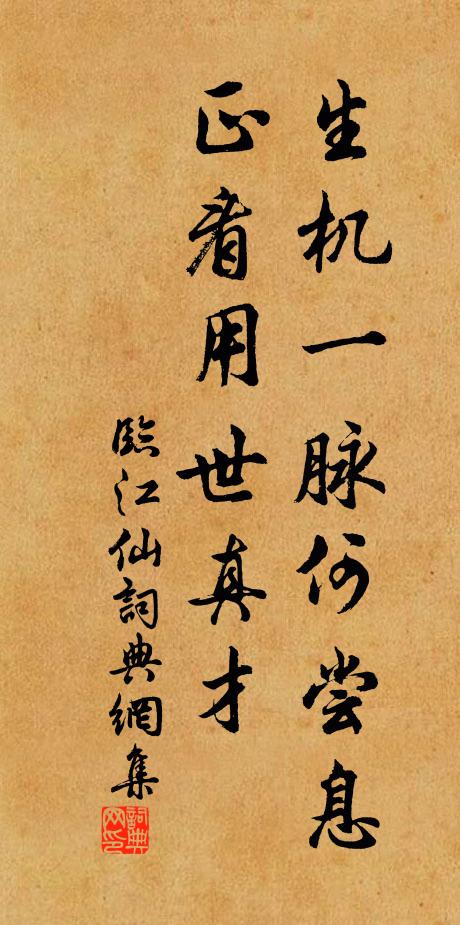 生机一脉何尝息
正看用世真才
臨江仙詞典網集
詞典网印